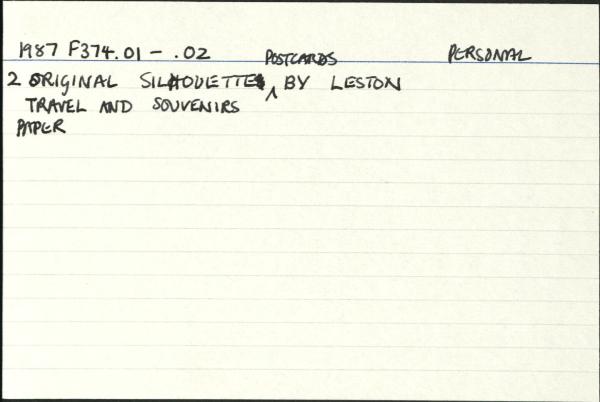 1987 F374.01 - .02 PERSONAL
2 ORIGINAL SILHOUETTE POSTCARDS BY LESTON
TRAVEL AND SOUVENIRS
PAPER